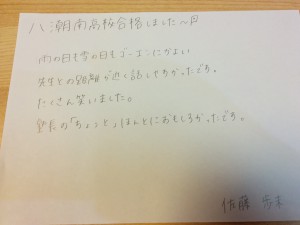 八潮南高校合格しました〜
雨の日も雪の日もゴーゴーにかよい
先生との距離が近く話しやすかったです。
たくさん笑いました。
塾長の「ちょっと」ほんとにおもしろかったです。
佐藤